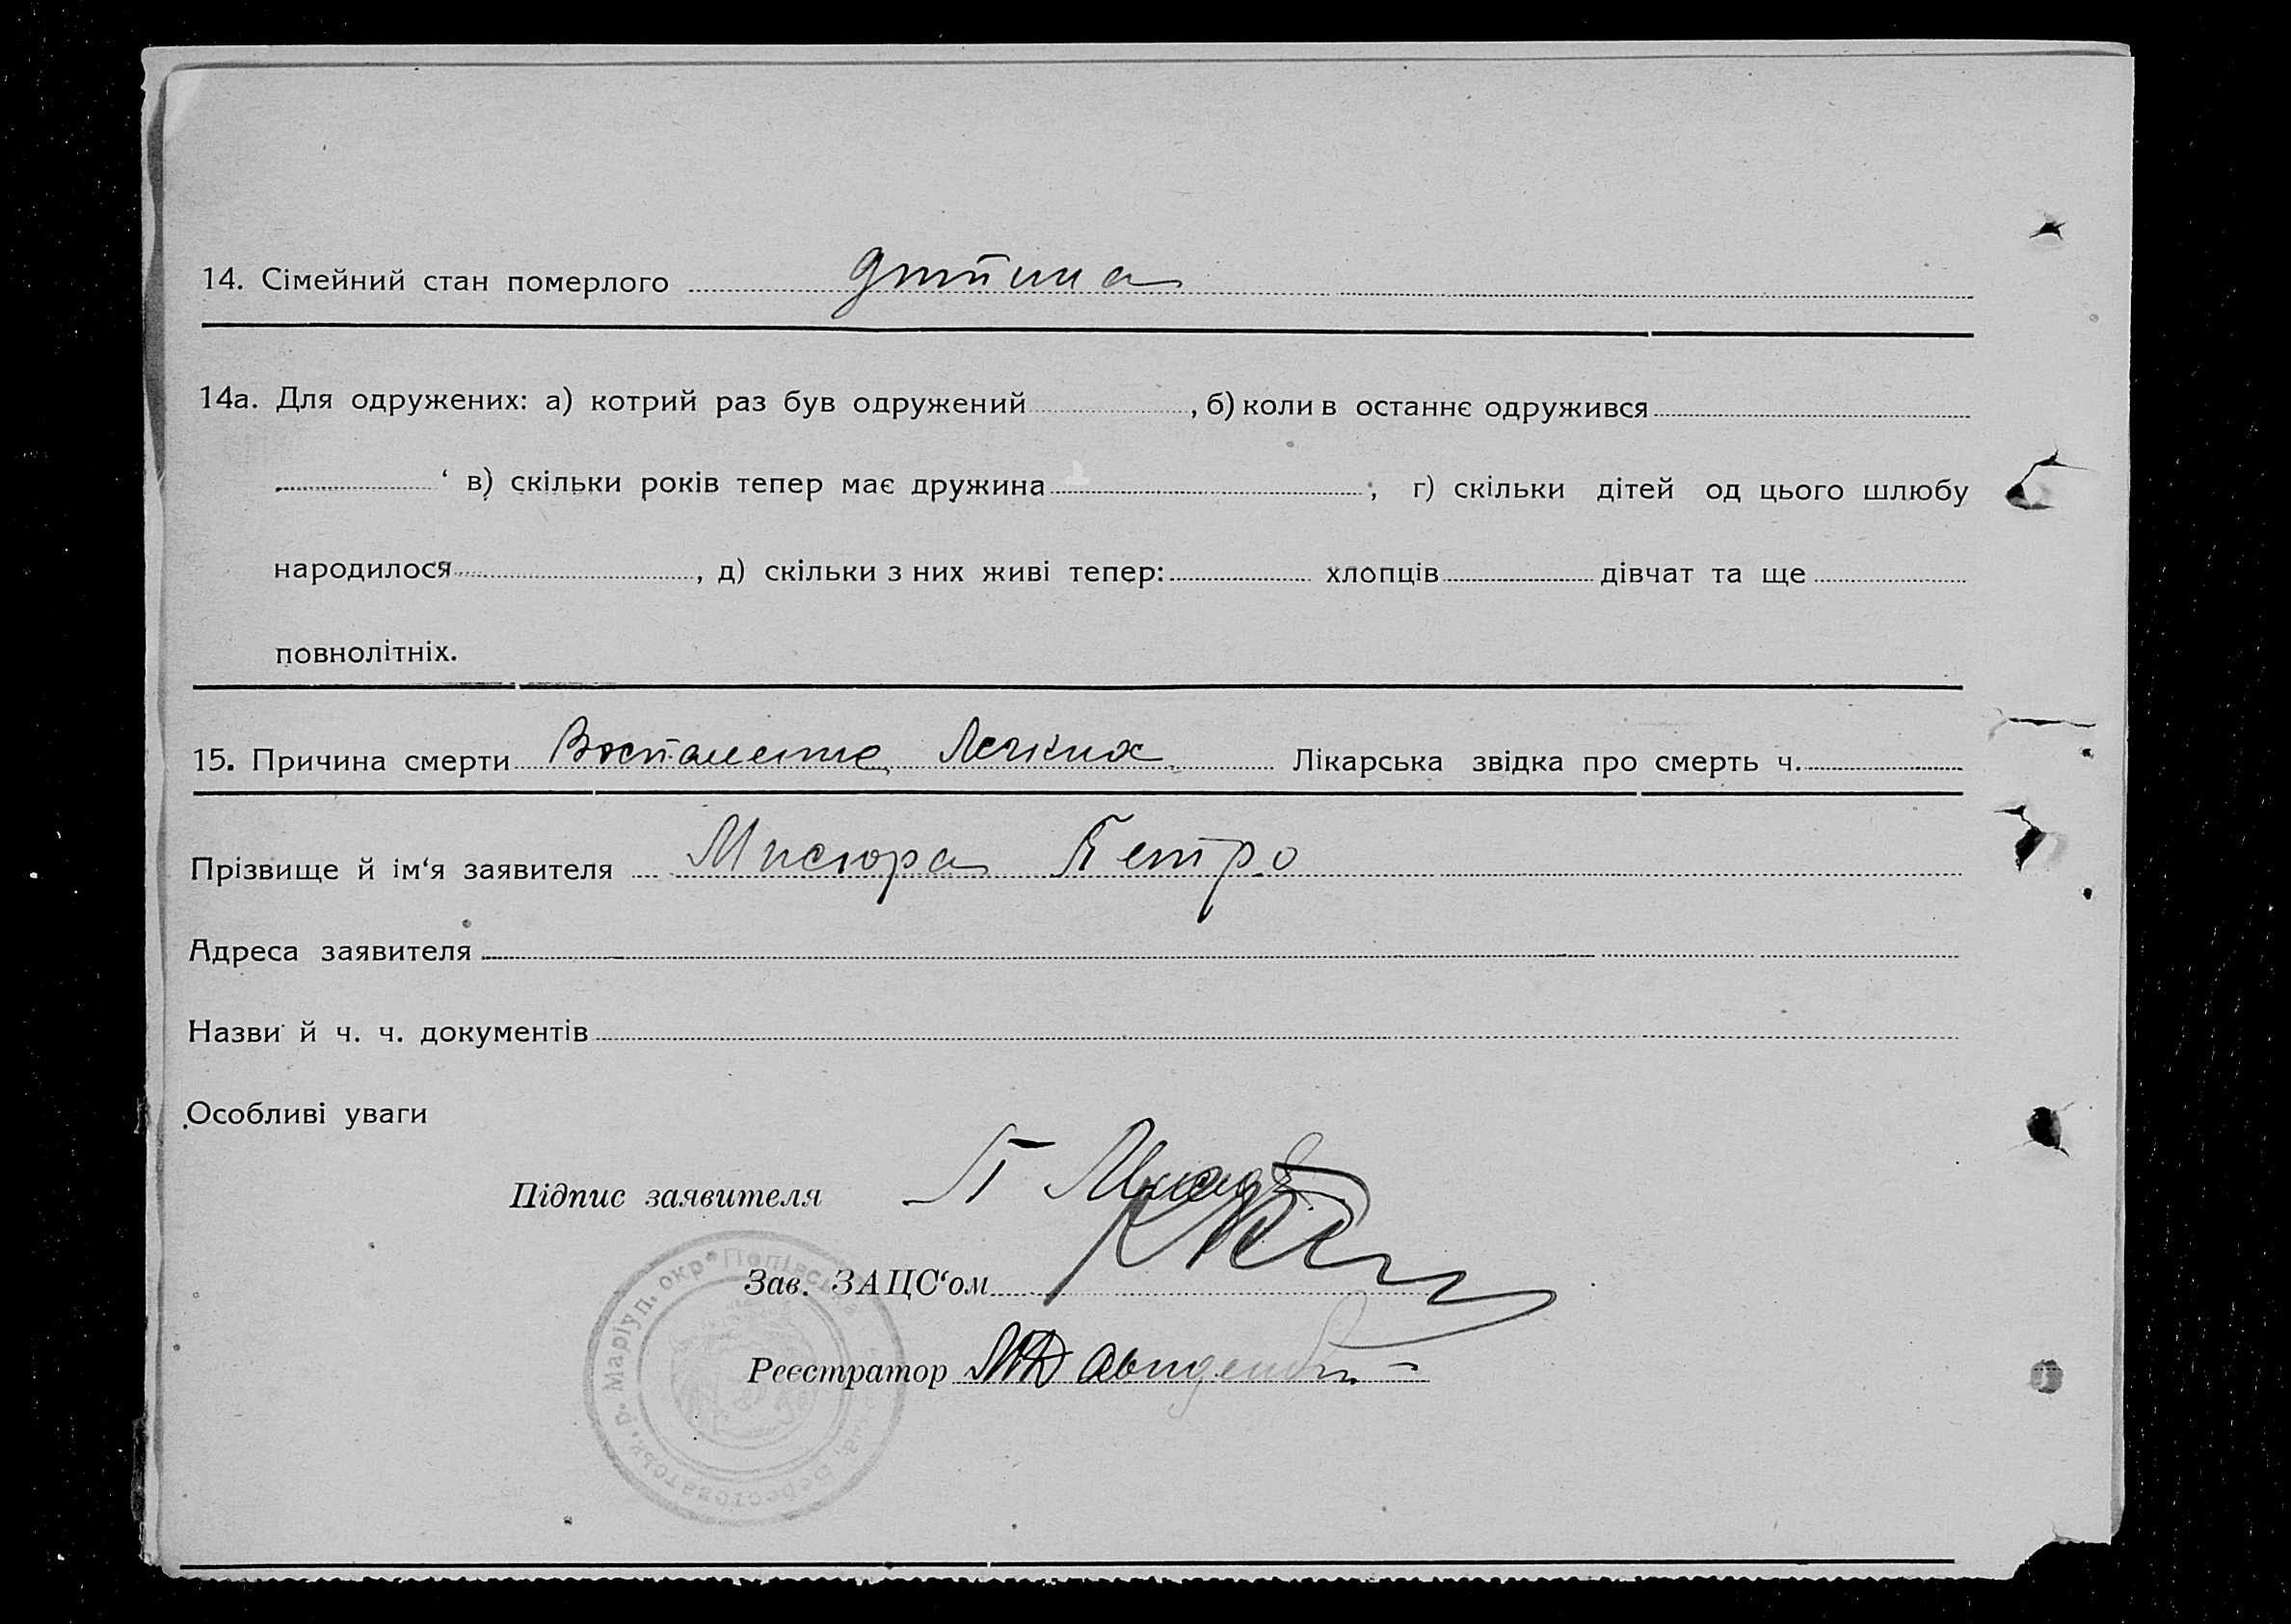 14. Сімейний стан померлого дитина
14а. Для одружених: а) котрий раз був одружений , б) коли в останнє одружився
‘ в) скільки років тепер має дружина ; г) скільки дітей од цього шлюбу
народилося , д) скільки з них живі тепер: хлопців дівчат та ще
повнолітніх.
15. Причина смерти Воспаление Легких Лікарська звідка про смерть ч.
Прізвище й ім‘я заявителя Мисюра Петро
Адреса заявителя
Назви й ч. ч. документів
Особливі уваги
Підпис заявителя П
Зав. ЗАЦС‘ом
Реєстратор
Берестоватськ. р. Маріуп. окр